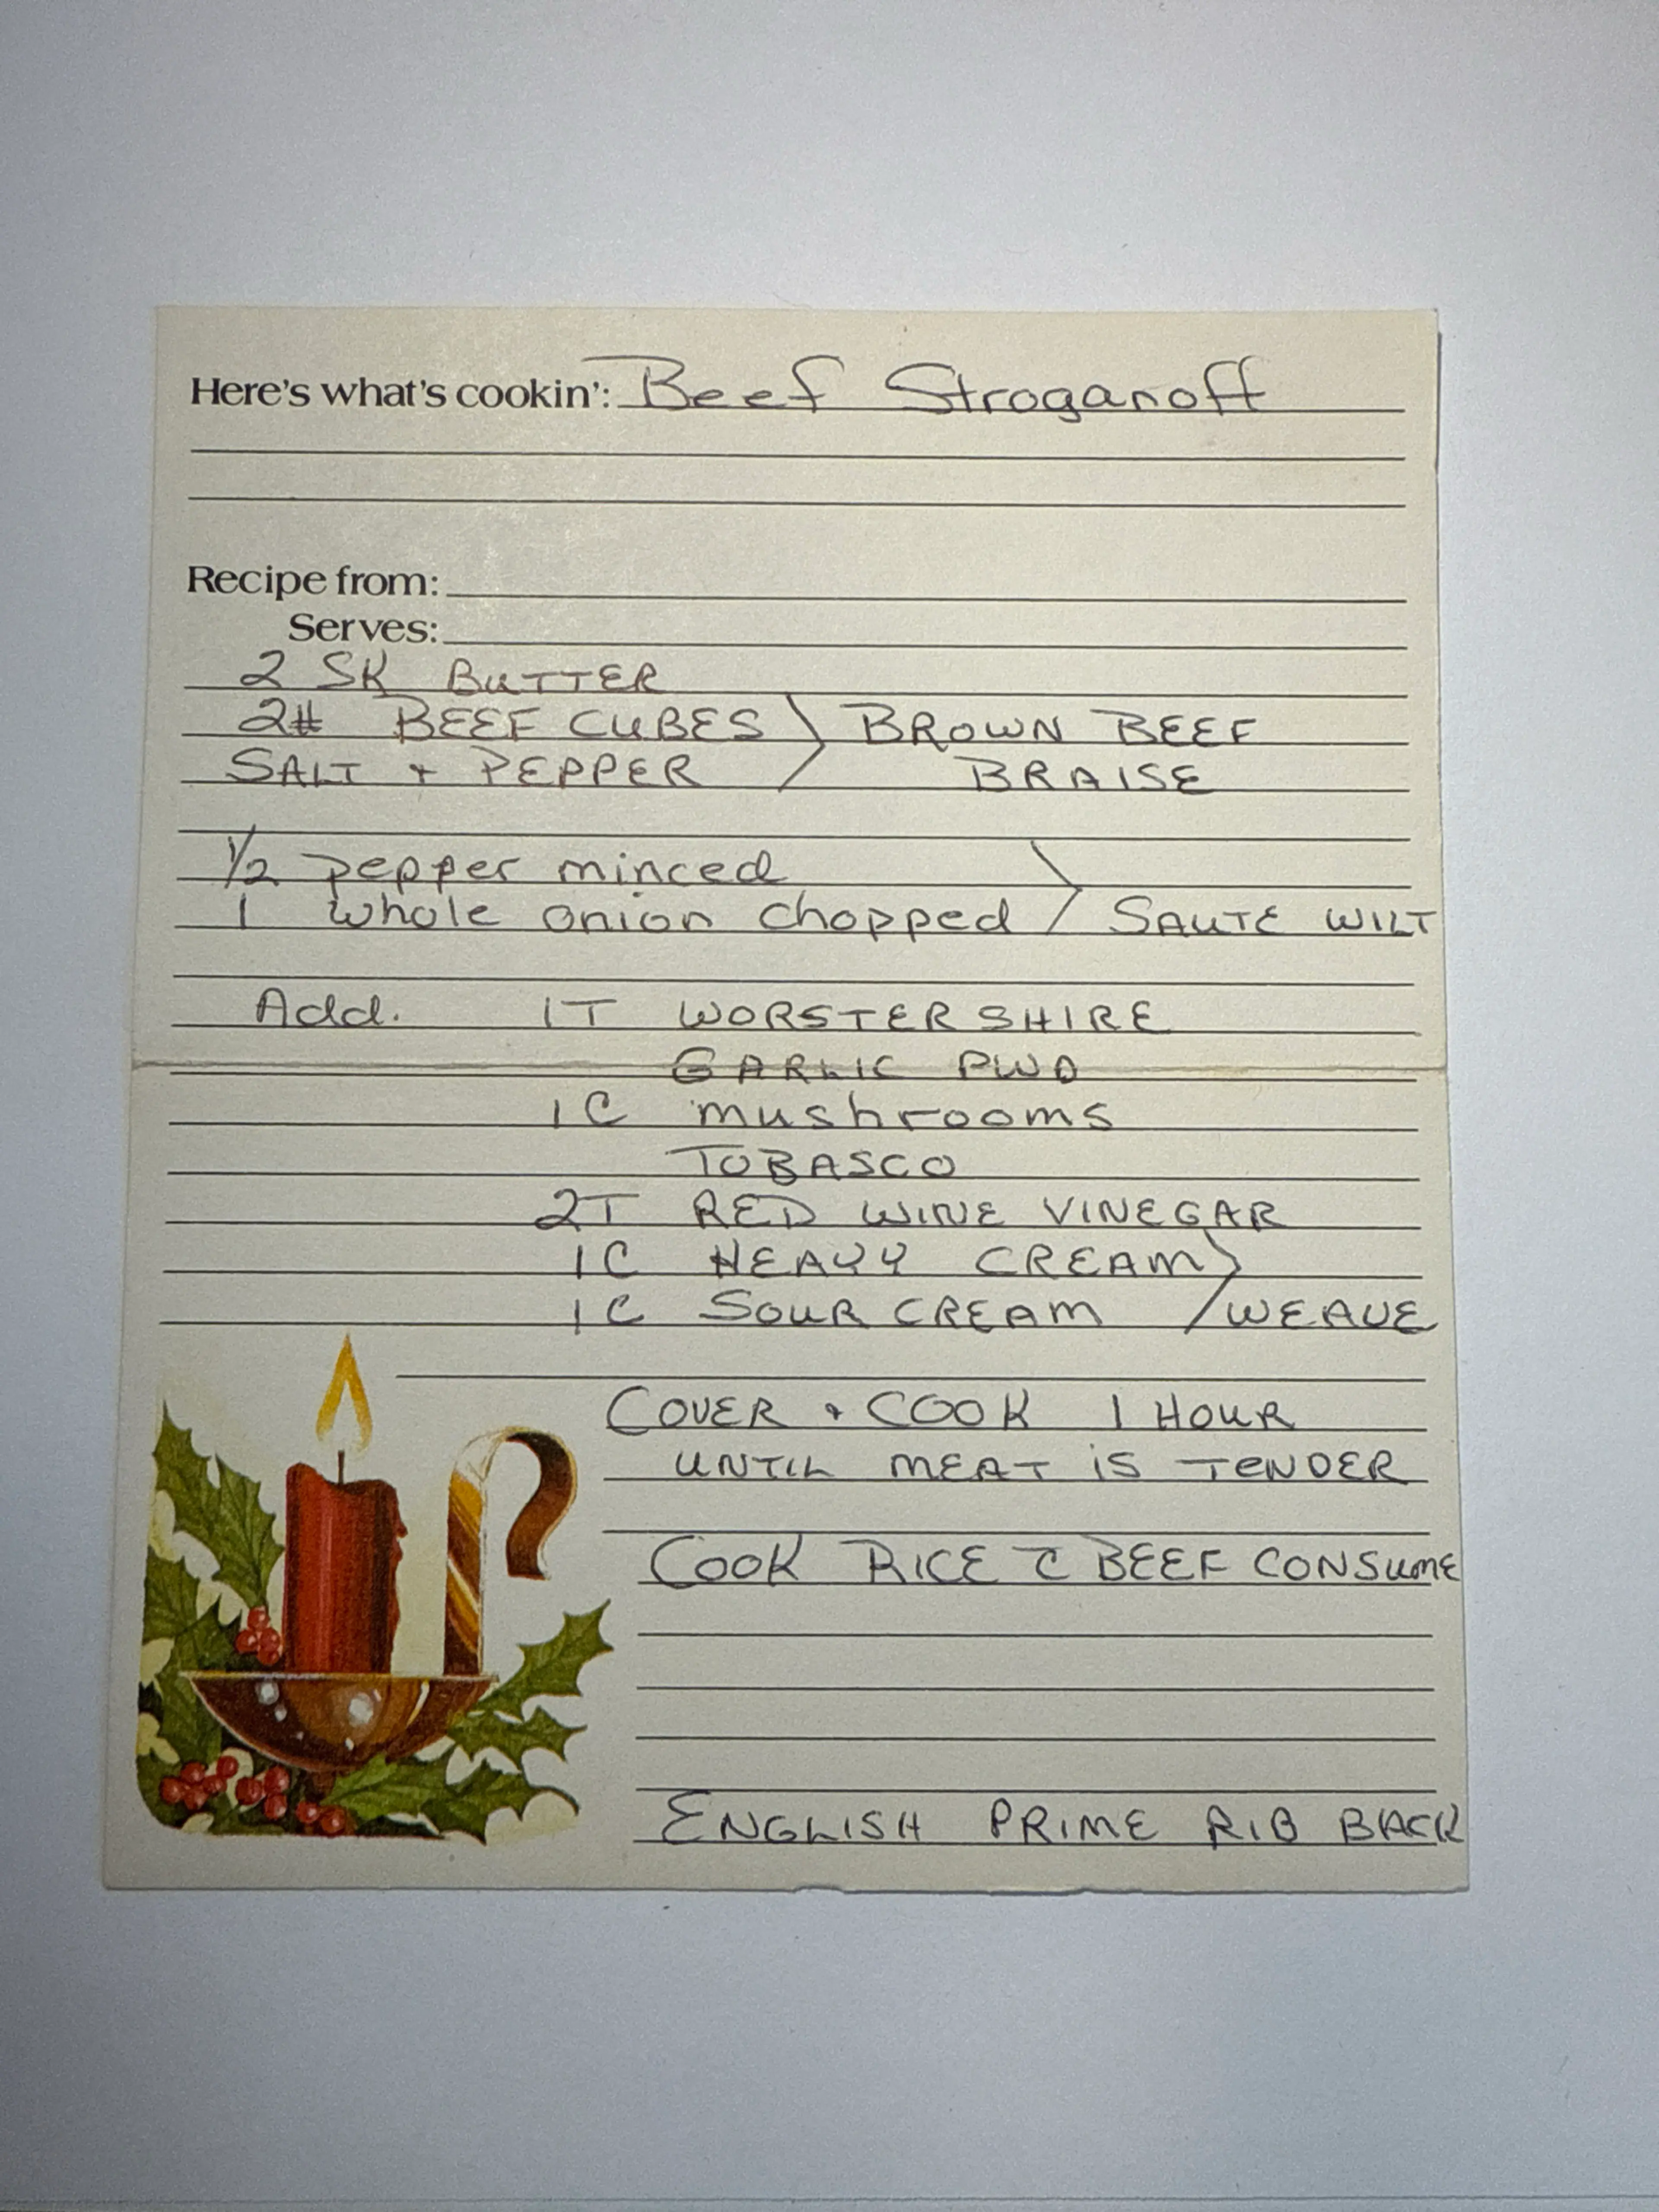 Here's what's cookin': Beef Stroganoff
Recipe from:
Serves:
2 SK BUTTER
2# BEEF CUBES } BROWN BEEF
SALT + PEPPER BRAISE
1/2 pepper minced
1 whole onion chopped } SAUTE WILT
Add. 1T WORSTERSHIRE
GARLIC PWD
1C mushrooms
TOBASCO
2T RED WINE VINEGAR
1C HEAVY CREAM
1C SOUR CREAM } WEAVE
COVER + COOK 1 HOUR
UNTIL MEAT IS TENDER
COOK RICE c̄ BEEF CONSUME
ENGLISH PRIME RIB BACK